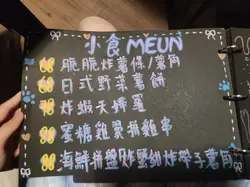 小食MEUN
脆脆炸薯條/薯角
日式野菜薯餅
炸蝦天婦羅
蜜糖雞翼雞串
海鮮拼盤炸蟹鉗炸帶子薯角